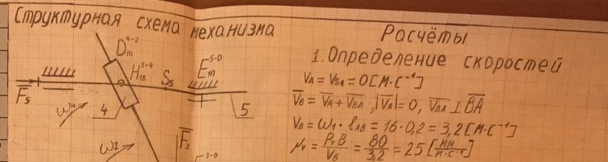 Структурная схема механизма
D 4-2
H 3-4
S5
E 5-0
F5
ω4
4
5
ω2
F5
5-0
Расчёты
1. Определение скоростей
VA = VS1 = 0 [м·с⁻¹]
V̄B = V̄A + V̄BA, |V̄A| = 0, V̄BA ⊥ B̄A̅
VB = ω1 · l1B = 16·0,2 = 3,2 [м·с⁻¹]
μv = PvB / VB = 80 / 3,2 = 25 [мм / м·с⁻¹]